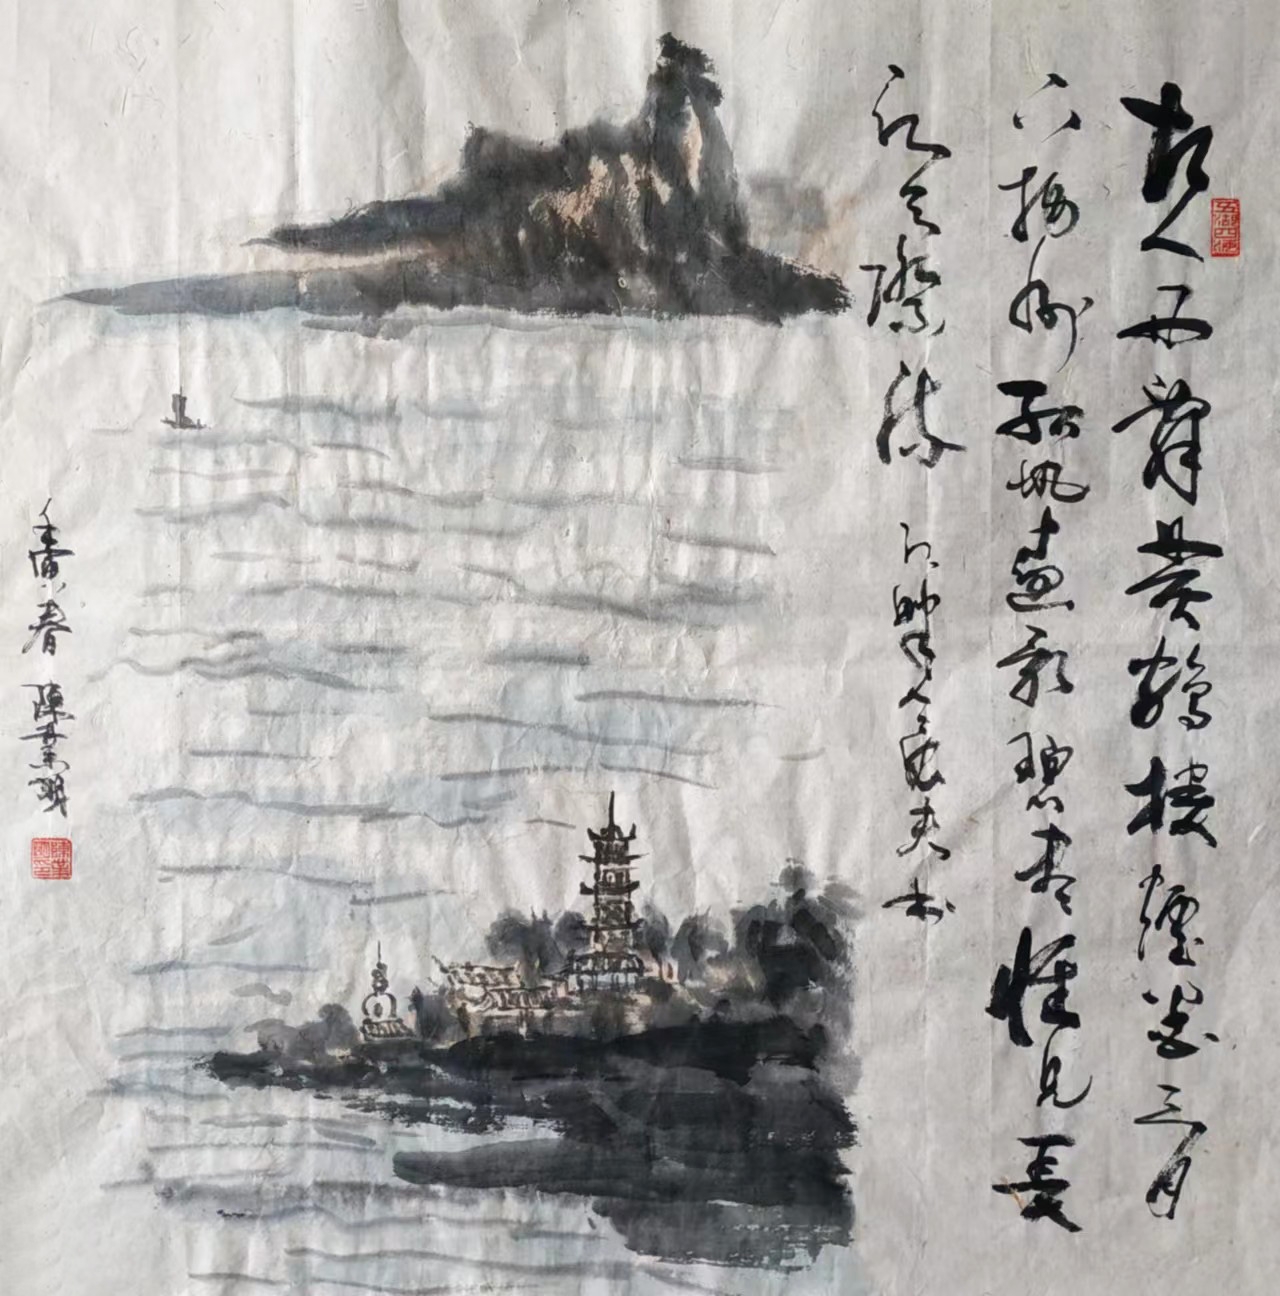 故人西辭黃鶴樓煙花三月
下揚州孤帆遠影碧空盡惟見長
江天際流
五湖四海
春 陳業明